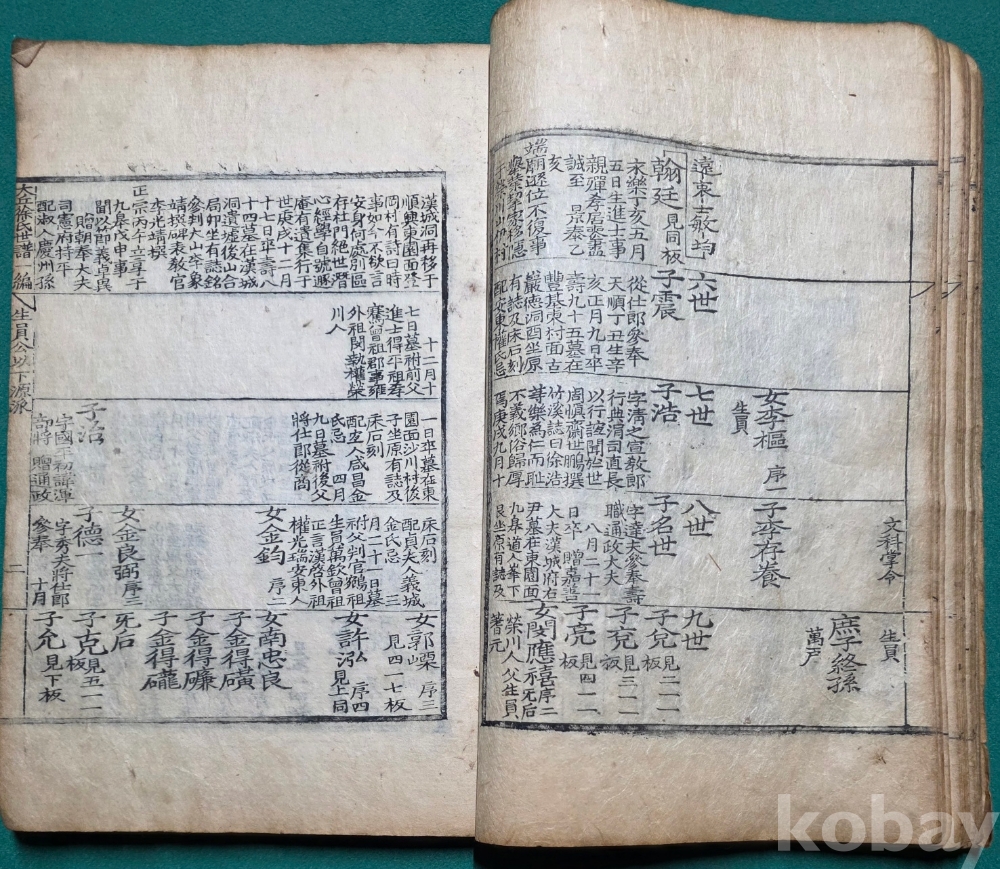 翰廷 見同板
永樂丁亥五月
五日生進士事
親殫孝居喪盡
誠至 景泰乙
亥
端廟遜位不復事
六世
子震
從仕郎參奉
天順丁丑生辛
亥正月九日卒
壽九十五墓在
豐基東村面古
嚴德洞酉坐原
有誌及床石刻
配安東權氏忌
女李樞 序一
生員
七世
子浩
字淸之宣敎郎
行典涓司直長
以行誼聞於世
周愼齋世鵬撰
竹溪誌曰徐浩
樂爲仁而耻
不義鄕俗歸厚
焉庚戌九月十
文科掌令
子李存養
八世
子名世
字達夫參奉壽
職通政大夫
八月二十一
日卒 贈嘉善
大夫漢城府右
尹墓在東園面
九皐道人峯下
艮坐原有誌及
生員
庶子終孫
萬戶
九世
見二一一板
見三一一板
子亮 見四一一板
女閔應禧 序二
榮川人父生員
著元
漢城洞再移于
順興東園面登
岡村有詩曰時
事如今不欲言
安身何處別區
存杜門絶世潛
心經學自號遯
庵有遺集行于
世庚戌十二月
十七日卒壽八
十四墓在漢城
洞遺墟後山合
局卯坐有誌銘
參判大山李象
靖撰碑表敎官
李光靖撰
正宗丙午立享于
九皐戊申事
聞以節義卓異
贈朝奉大夫
司憲府持平
配淑人慶州孫
十二月十
七日墓祔前父
進士得平祖存
騫曾祖郡事雍
外祖閔執權榮
川人
一日卒墓在東
園面沙川村後
子坐原有誌及
床石刻
配恭人咸昌金
氏忌 四月
九日墓祔後父
將仕郎從商
子治
床石刻
配貞夫人義城
金氏忌 三
月二十一日墓
祔父判官鶴祖
生員萬欽曾祖
正言漢啓外祖
權光瑞安東人
女金鈞 序二
女金良弼 序三
子德一
字秀夫將仕郎
參奉 十月
女郭㟳 序三
見四一七板
女許泓 序四
見上同
女南忠良
子金得礦
子金得磏
子金得礲
无后
子克 見五一一板
子允 見下板
大丘徐氏世譜 編
生員公以下源派
二
kobay